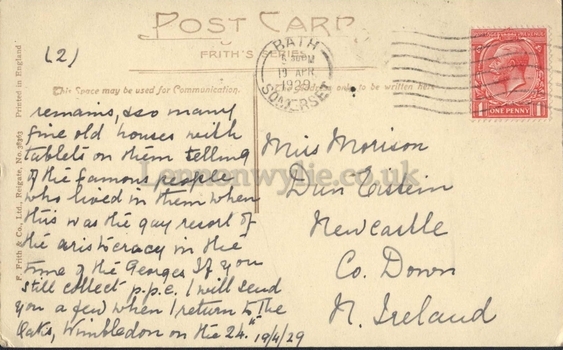 POST CARD
FRITH'S SERIES
(2)
This Space may be used for Communication.
to be written here
BATH
19 APR
1929
SOMERSET
ONE PENNY
F. Frith & Co., Ltd., Reigate, No.
Printed in England
remains, & so many
fine old houses with
tablets on them telling
of the famous people
who lived in them when
this was the gay resort of
the aristocracy in the
time of the Georges If you
still collect p.p.c. I will send
you a few when I return to The
Oaks, Wimbledon on the 24th
19/4/29
Miss Morison
Dun
Newcastle
Co. Down
N. Ireland
Lennonwylie.co.uk